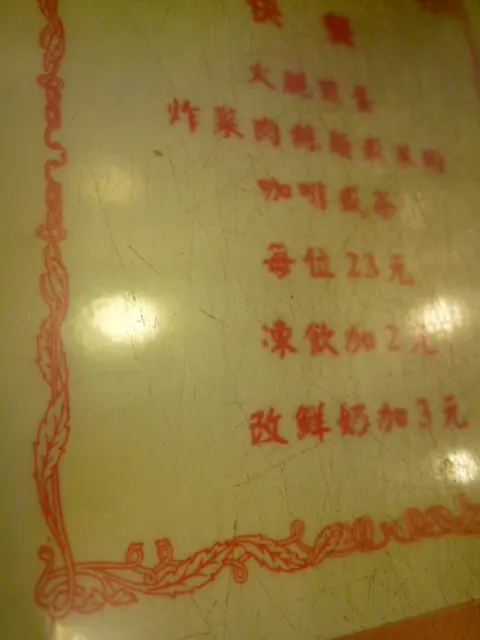 快餐
火腿煎蛋
炸菜肉絲麵或米粉
咖啡或茶
每位23元
凍飲加2元
改鮮奶加3元